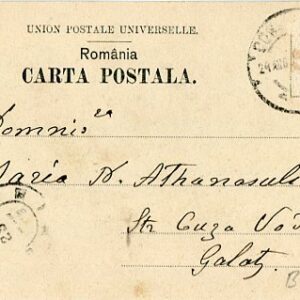 UNION POSTALE UNIVERSELLE.
România
CARTA POSTALA.
Domnie
Maria N. Athanasule
Str. Cuza Vod
Galatz